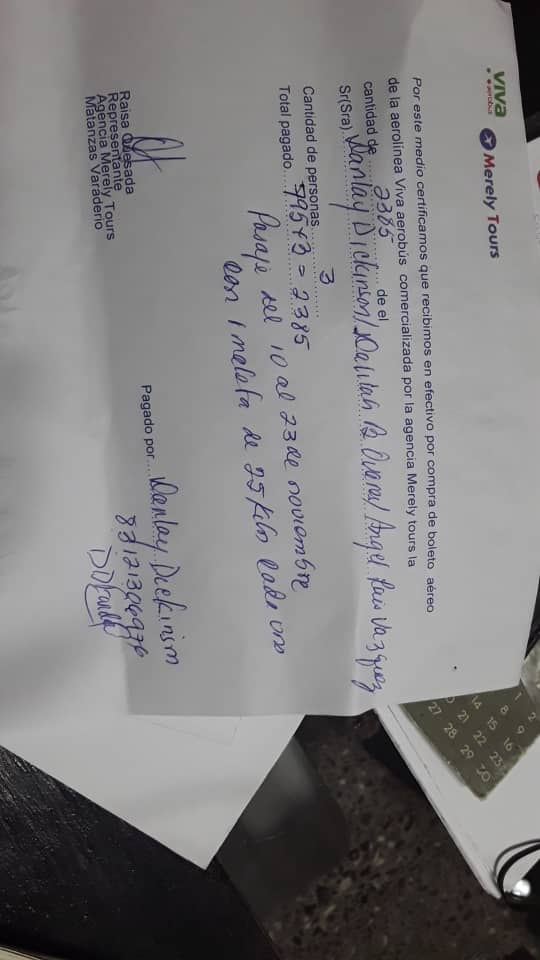 viva aerobus Merely Tours
Por este medio certificamos que recibimos en efectivo por compra de boleto aéreo
de la aerolinea Viva aerobús comercializada por la agencia Merely tours la
cantidad de 2385 de el
Sr(Sra). Danlay Dickinson/ Dalilah B Alvarez/ Angel Luis Vazquez
Cantidad de personas 3
Total pagado 795+3 = 2385
Pasaje del 10 al 23 de noviembre
con 1 maleta de 25 Kilo cada uno
Raisa Quesada
Representante
Agencia Merely Tours
Matanzas Varaderio
Pagado por Danlay Dickinson
1 2
8 9
14 15 16
20 21 22 23
27 28 29 30